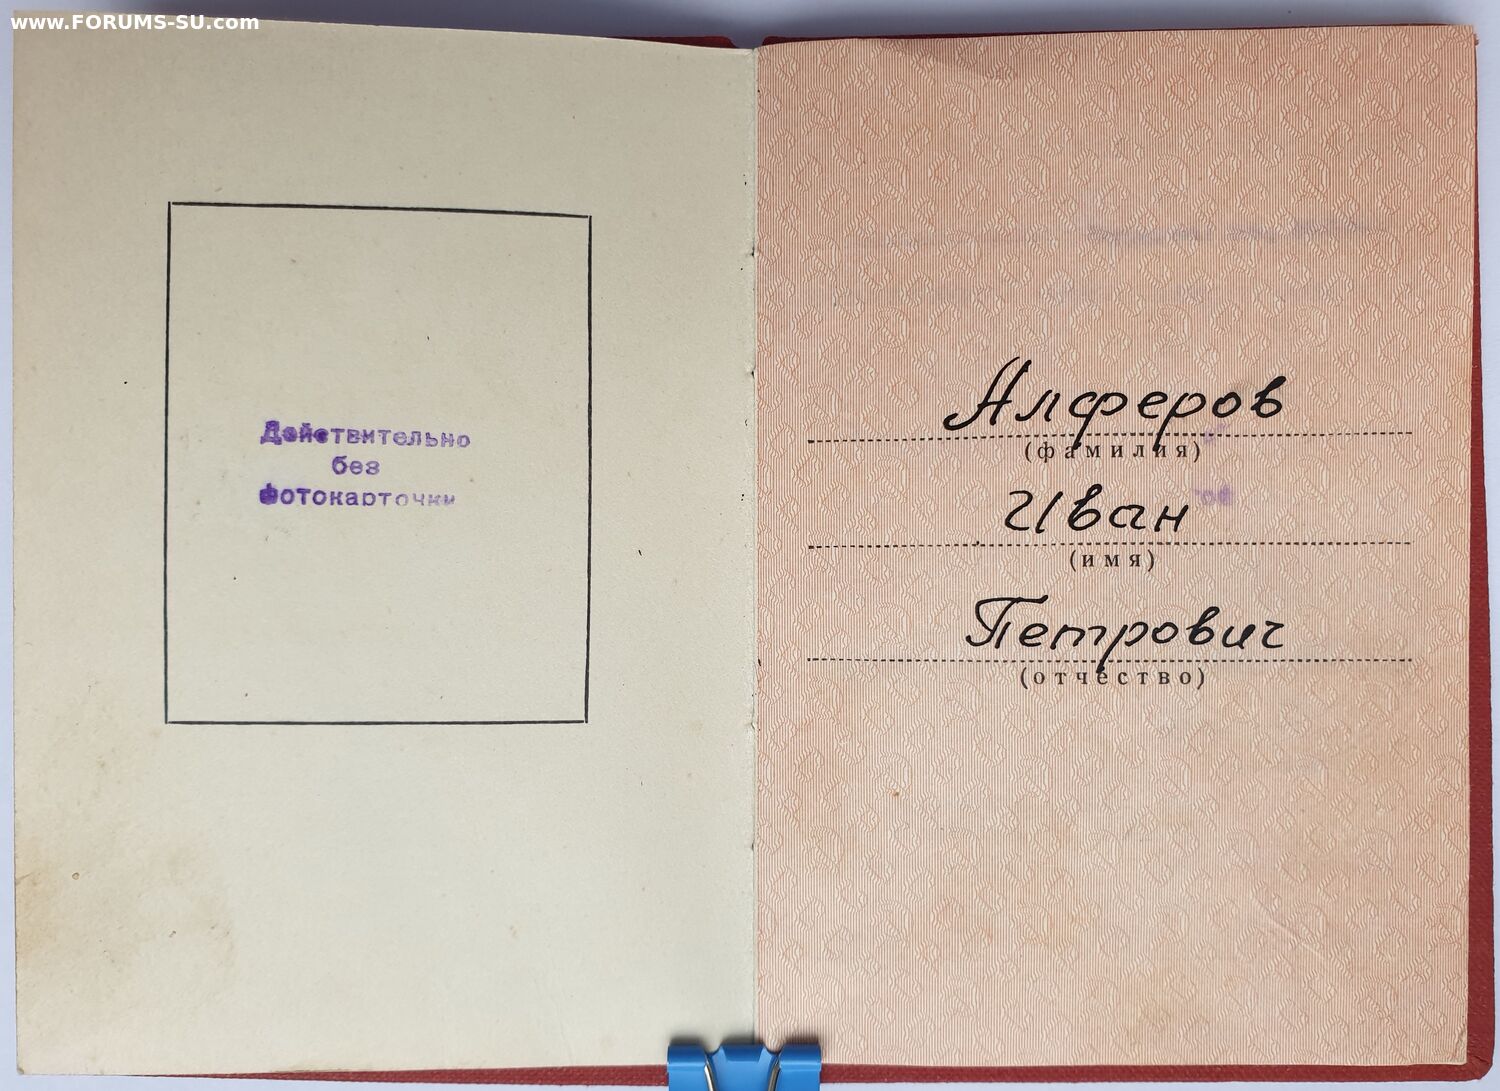 www.FORUMS-SU.com
Действительно
без
фотокарточки
Алферов
(фамилия)
Иван
(имя)
Петрович
(отчество)